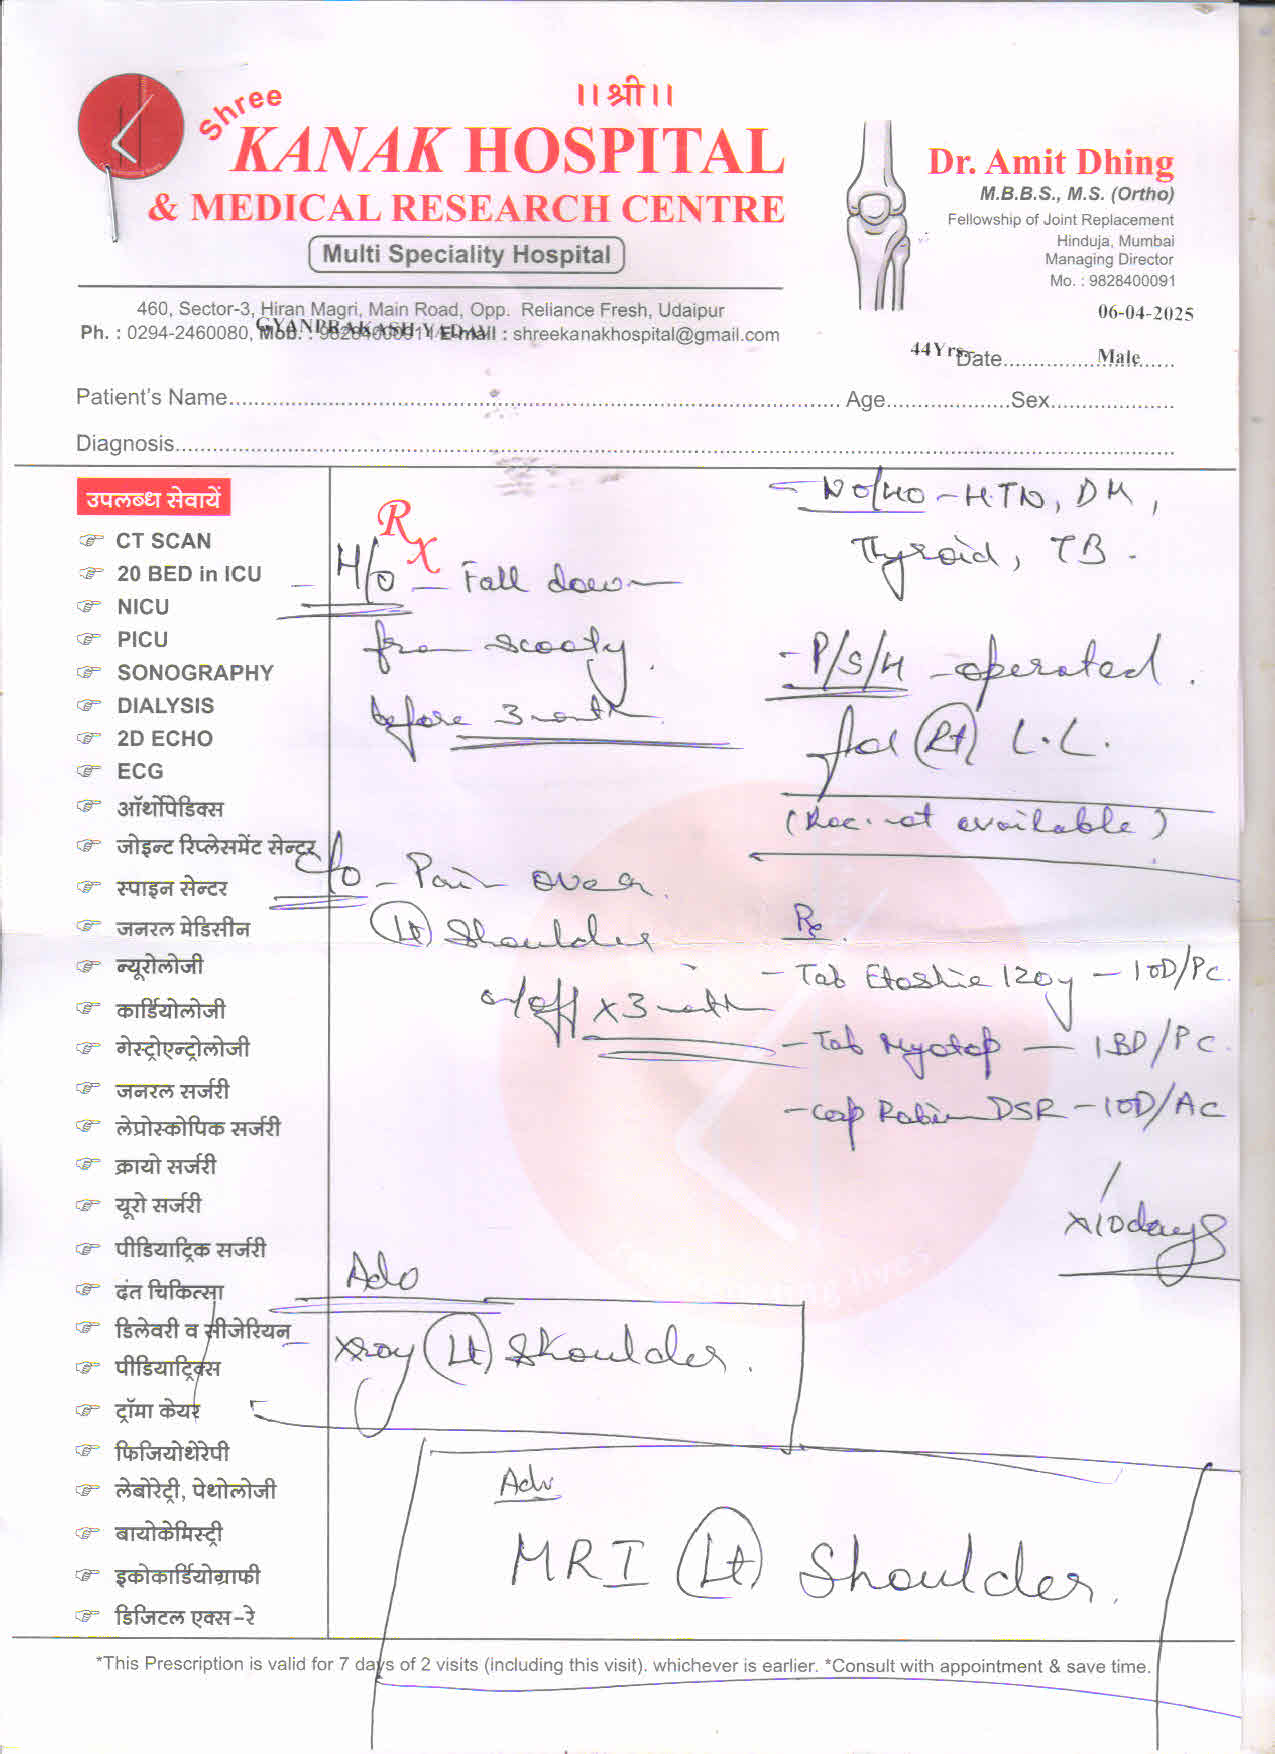 ।।श्री।।
Shree
KANAK HOSPITAL
& MEDICAL RESEARCH CENTRE
Multi Speciality Hospital
460, Sector-3, Hiran Magri, Main Road, Opp. Reliance Fresh, Udaipur
Ph. : 0294-2460080, Mob. : 9828400091 E-mail : shreekanakhospital@gmail.com
GYANPRAKASH YADAV
Dr. Amit Dhing
M.B.B.S., M.S. (Ortho)
Fellowship of Joint Replacement
Hinduja, Mumbai
Managing Director
Mo. : 9828400091
06-04-2025
44Yrs Date Male
Patient's Name Age Sex
Diagnosis
उपलब्ध सेवायें
CT SCAN
20 BED in ICU
NICU
PICU
SONOGRAPHY
DIALYSIS
2D ECHO
ECG
ऑर्थोपेडिक्स
जोइन्ट रिप्लेसमेंट सेन्टर
स्पाइन सेन्टर
जनरल मेडिसीन
न्यूरोलोजी
कार्डियोलोजी
गेस्ट्रोएन्ट्रोलोजी
जनरल सर्जरी
लेप्रोस्कोपिक सर्जरी
क्रायो सर्जरी
यूरो सर्जरी
पीडियाट्रिक सर्जरी
दंत चिकित्सा
डिलेवरी व सीजेरियन
पीडियाट्रिक्स
ट्रॉमा केयर
फिजियोथेरेपी
लेबोरेट्री, पेथोलोजी
बायोकेमिस्ट्री
इकोकार्डियोग्राफी
डिजिटल एक्स-रे
Rx
H/o - Fall down
from scooty.
before 3 month
C/o - Pain over
(Lt) Shoulder
on/off x 3 month
- No/HO - HTN, DM,
Thyroid, TB.
- P/S/H - operated.
for (Rt) L.L.
(Rec. not available)
Rx
- Tab Etoshine 120g - 1OD/PC.
- Tab Myotop - 1BD/PC
- Cap Rabi DSR - 1OD/AC
x10days
Adv
Xray (Lt) Shoulder.
Adv
MRI (Lt) Shoulder.
*This Prescription is valid for 7 days of 2 visits (including this visit). whichever is earlier. *Consult with appointment & save time.